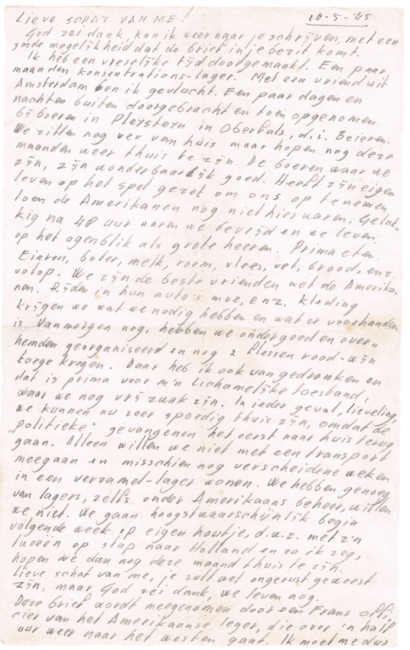 Lieve SCHAT VAN ME! 10-5-'45
God zei dank, kan ik weer naar je schrijven, met een
goede mogelijkheid dat de brief in je bezit komt.
Ik heb een vreselijke tijd doorgemaakt. Een paar
maanden konsentrations-lager. Met een vriend uit
Amsterdam ben ik gevlucht. Een paar dagen en
nachten buiten doorgebracht en toen opgenomen
bij boeren in Pleystein in Oberpfals, d.i. Beieren.
We zitten nog ver van huis maar hopen nog deze
maanden weer thuis te zijn. De boeren waar we
zijn, zijn wonderbaarlijk goed. Heeft zijn eigen
leven op het spel gezet om ons op te nemen,
toen de Amerikanen nog niet hier waren. Geluk-
kig na 48 uur waren we bevrijd en we leven
op het ogenblik als grote heeren. Prima eten.
Eieren, boter, melk, room, vlees, vet, brood, enz.
volop. We zijn de beste vrienden met de Amerika-
nen. Rijden in hun auto's mee, enz. kleding
krijgen we wat we nodig hebben en wat er voorhanden
is. Vanmorgen nog, hebben we ondergoed en over-
hemden georganiseerd en nog 2 flessen rood-wijn
toege kregen. Daar heb ik ook van gedronken en
dat is prima voor m'n Lichamelijke toestand,
waar we nog vrij zwak zijn. In ieder geval, lieveling,
we kunnen nu zeer spoedig thuis zijn, omdat de
"politieke" gevangenen het eerst naar huis terug
gaan. Alleen willen we niet met een transport
meegaan en misschien nog verscheidene weken
in een verzamel-lager wonen. We hebben genoeg
van lagers, zelfs onder Amerikaans beheer, willen
we niet. We gaan hoogstwaarschijnlijk begin
volgende week op eigen houtje, d.w.z. met z'n
tweeën op stap naar Holland en zo ik zeg,
hopen we dan nog deze maand thuis te zijn.
Lieve schat van me, je zult wel ongerust geweest
zijn, maar God zei dank, we leven nog.
Deze brief wordt meegenomen door een Frans offi-
cier van het Amerikaanse leger, die over 'n half
uur weer naar het westen gaat. Ik moet me dus